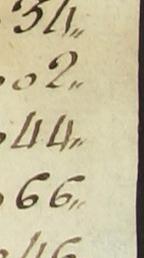 34"
02"
44"
66"
46